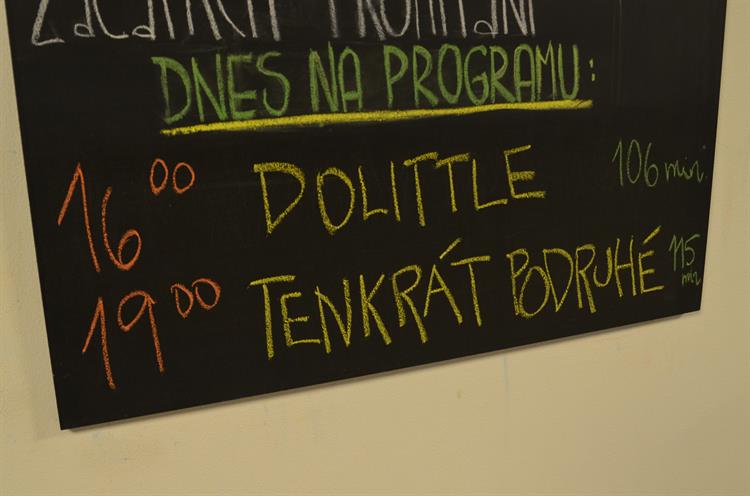 ZAČÁTKY PROMÍTÁNÍ
DNES NA PROGRAMU:
16 00 DOLITTLE 106 min.
19 00 TENKRÁT PODRUHÉ 115 min